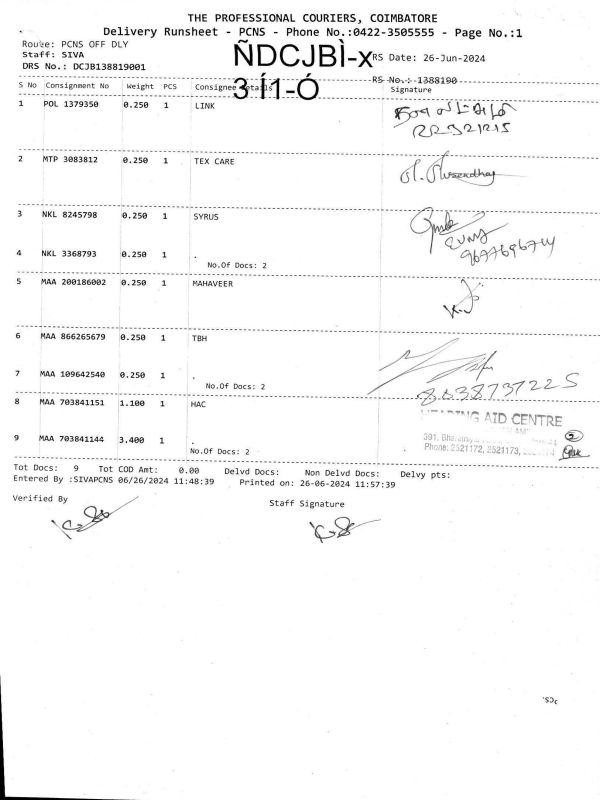 THE PROFESSIONAL COURIERS, COIMBATORE
Delivery Runsheet - PCNS - Phone No.:0422-3505555 - Page No.:1
Route: PCNS OFF DLY
Staff: SIVA
DRS No.: DCJB138819001
ÑDCJBÌ-x
3 Í1-Ó
RS Date: 26-Jun-2024
RS No.: 1388190
S No Consignment No Weight PCS Consignee Details Signature
1 POL 1379350 0.250 1 LINK
2 MTP 3083812 0.250 1 TEX CARE
3 NKL 8245798 0.250 1 SYRUS
9677696744
4 NKL 3368793 0.250 1 .
No.Of Docs: 2
5 MAA 200186002 0.250 1 MAHAVEER
6 MAA 866265679 0.250 1 TBH
7 MAA 109642540 0.250 1 .
No.Of Docs: 2
8 MAA 703841151 1.100 1 HAC
HEARING AID CENTRE
9 MAA 703841144 3.400 1 .
No.Of Docs: 2
Phone: 2521172, 2521173,
2
Tot Docs: 9 Tot COD Amt: 0.00 Delvd Docs: Non Delvd Docs: Delvy pts:
Entered By :SIVAPCNS 06/26/2024 11:48:39 Printed on: 26-06-2024 11:57:39
Verified By Staff Signature